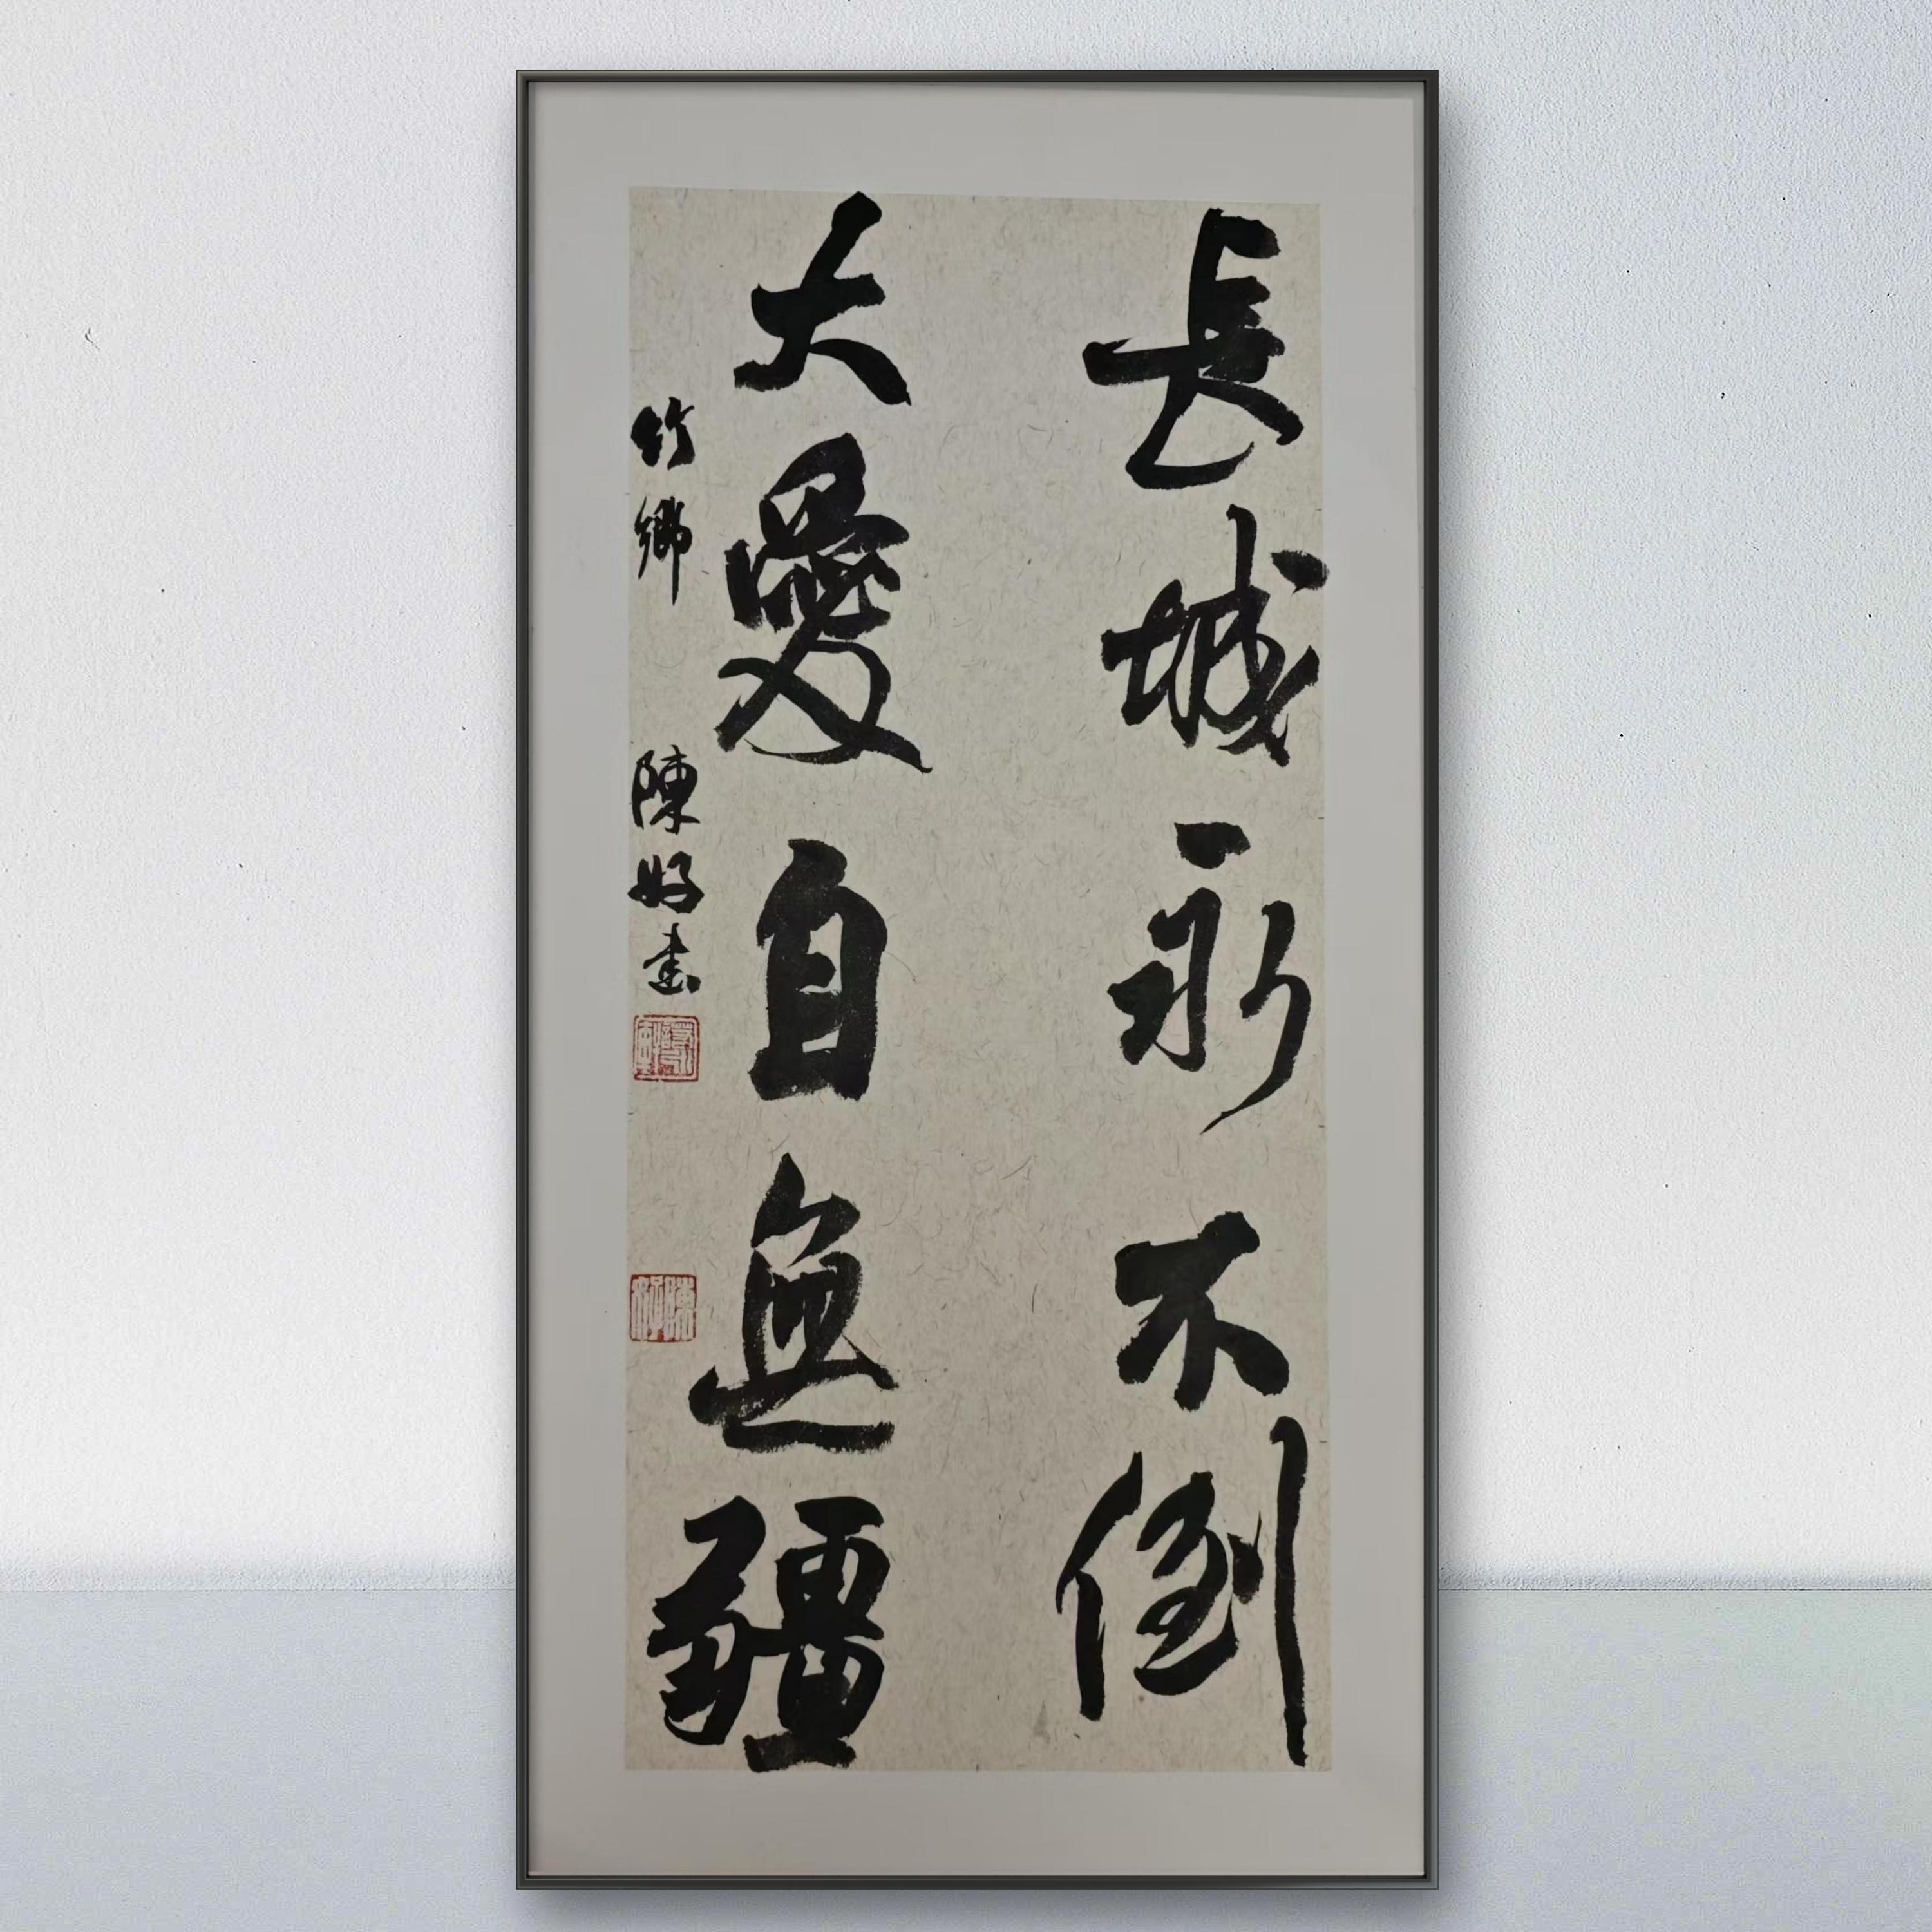 長城永不倒
大愛自無疆
竹鄉 陳好書